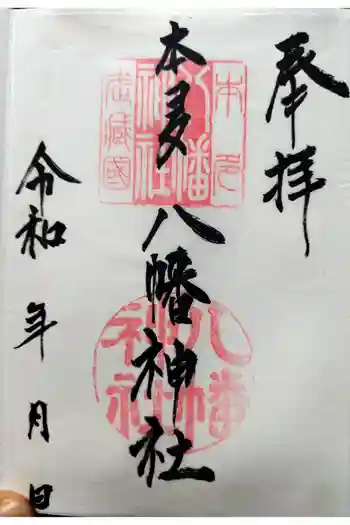 奉拝
本多八幡神社
令和 年 月 日
武蔵國
八幡神社
八幡神社